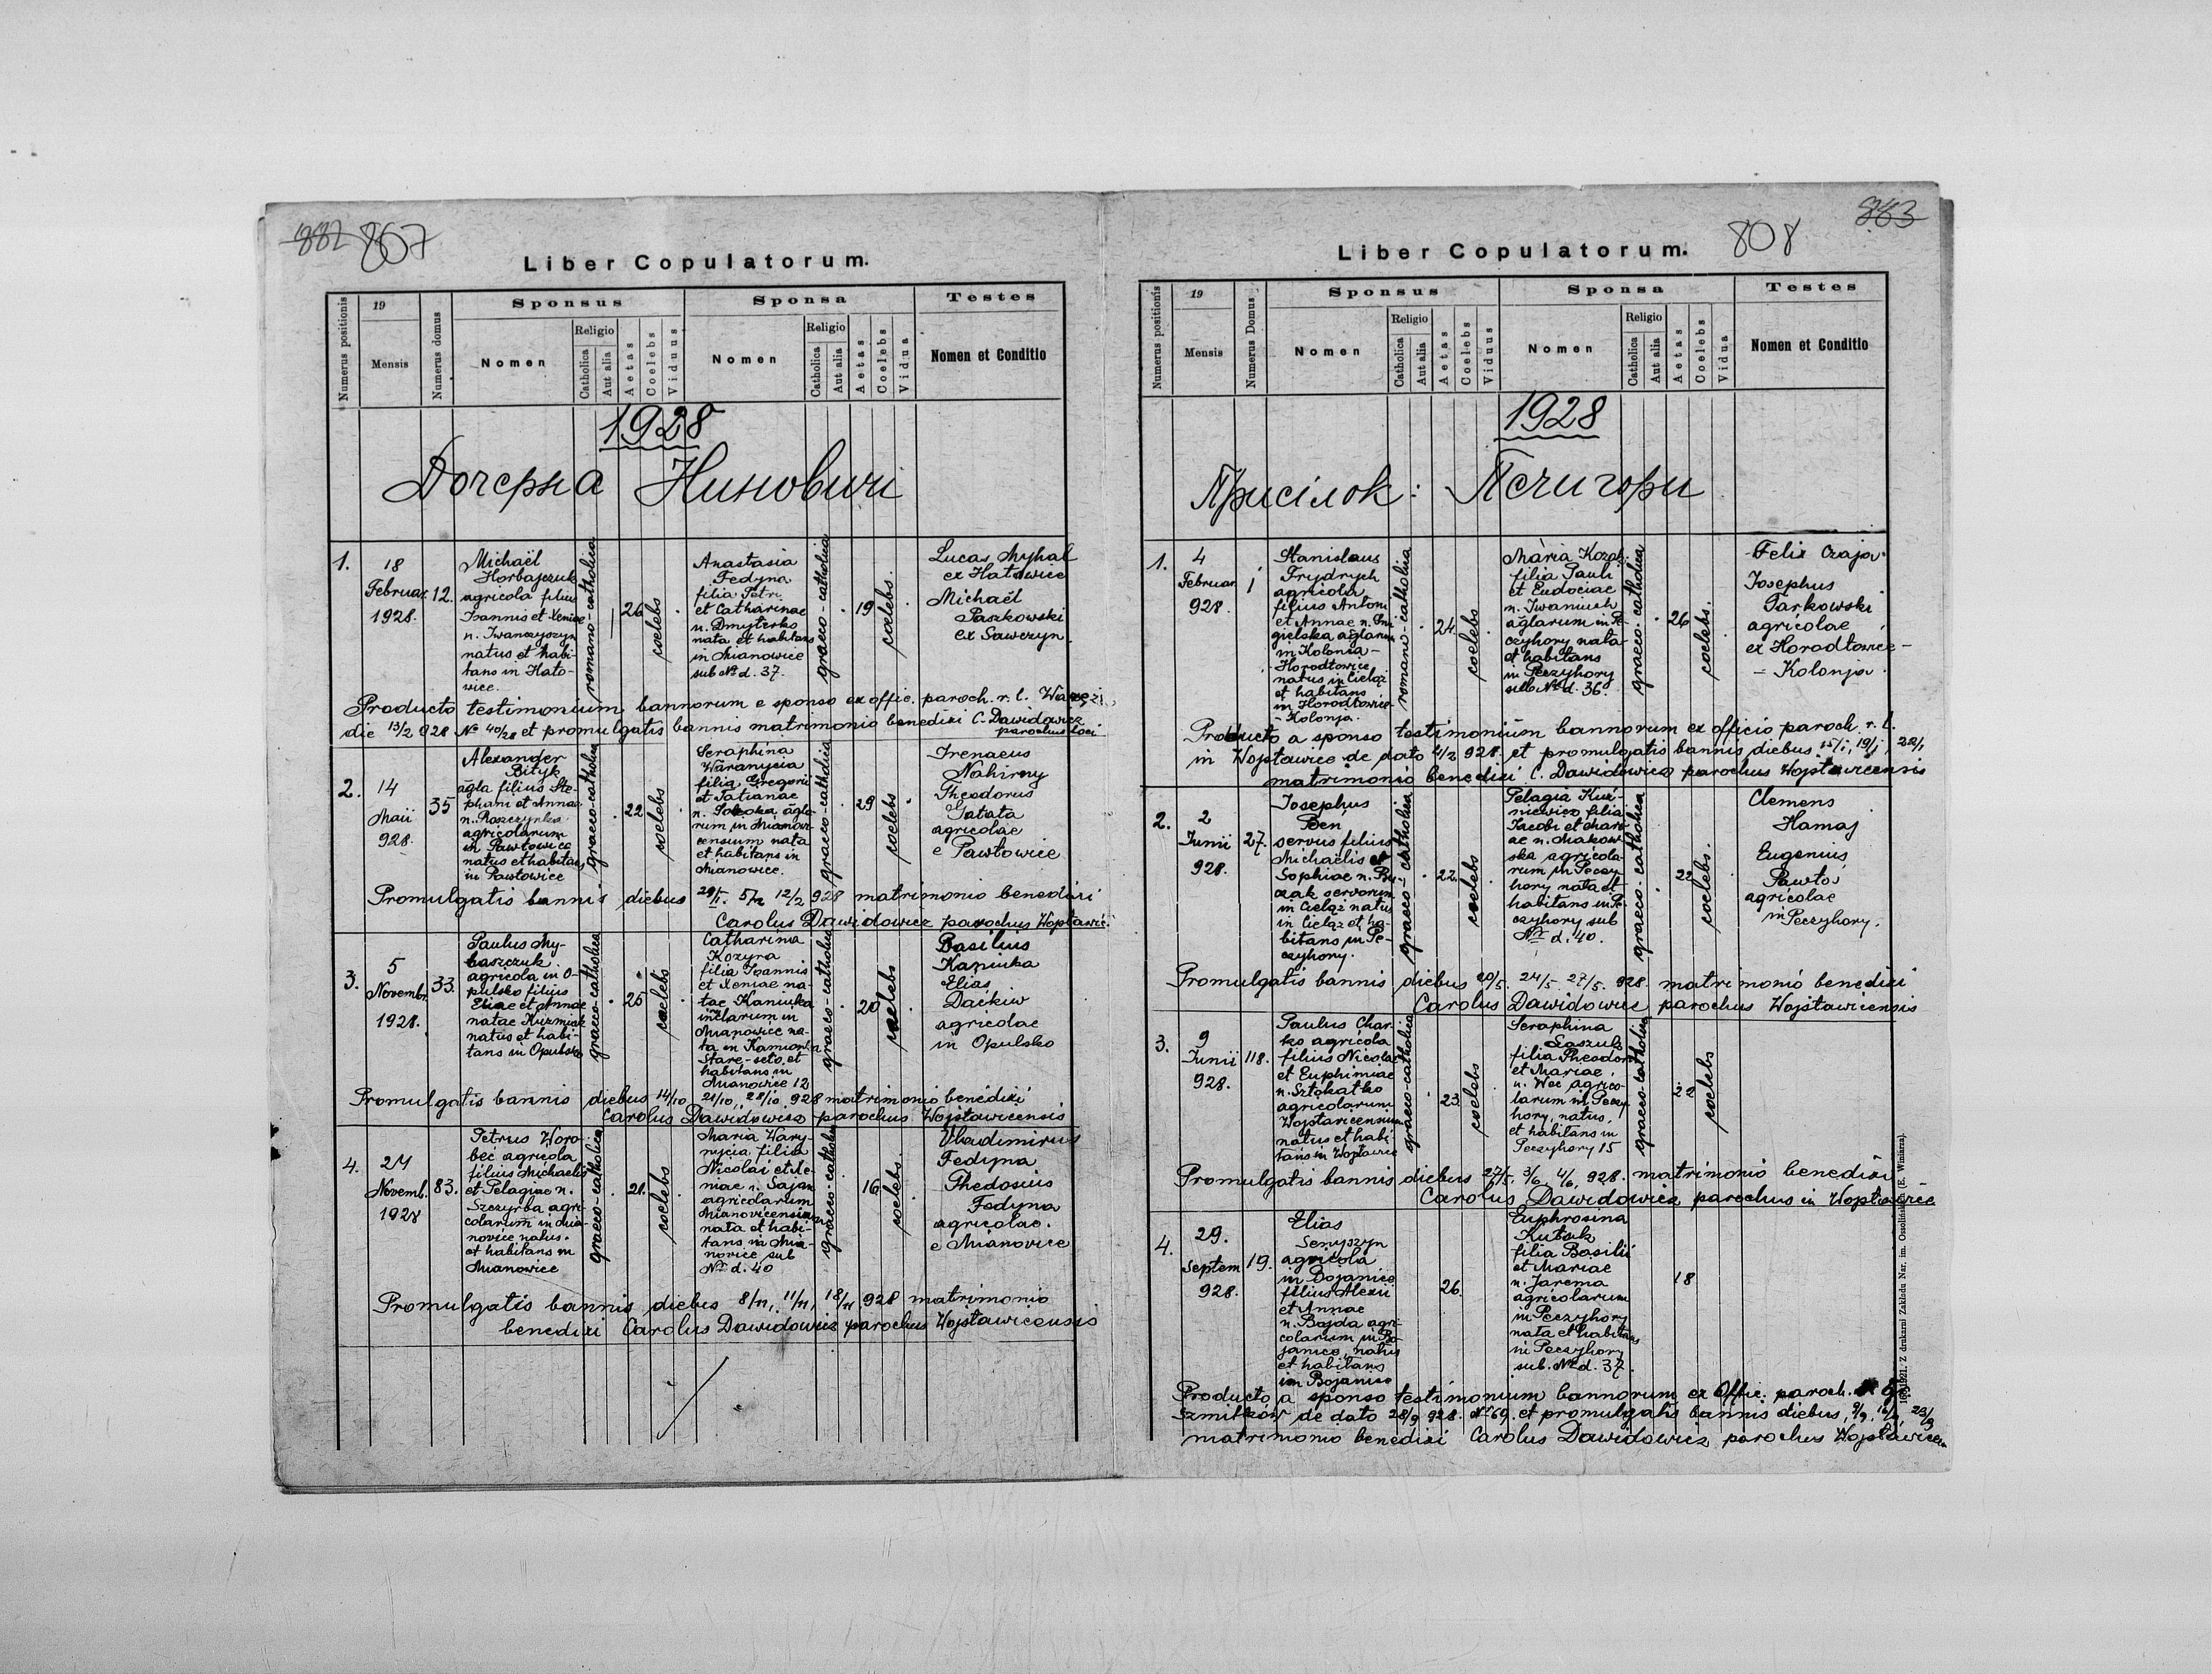 882 807
Liber Copulatorum.
Numerus positionis
19
Mensis
Numerus domus
Sponsus
Nomen
Religio
Catholica
Aut alia
Aetas
Coelebs
Viduus
Sponsa
Nomen
Religio
Catholica
Aut alia
Aetas
Coelebs
Vidua
Testes
Nomen et Conditio
1928
Дочерна Ниновичі
1.
18
Februar.
1928.
12.
Michaël
Horbajczuk
agricola filius
Joannis et Xeniae
n. Iwanczyszyn
natus et habi-
tans in Hato-
wice.
romano-catholica
26
coelebs
Anastasia
Fedyna
filia Petri
et Catharinae
n. Dmyterko
nata et habitans
in Mianowice
sub № d. 37.
graeco-catholica
19
coelebs.
Lucas Myhal
ex Hatowice
Michaël
Paszkowski
ex Sawczyn.
Producto testimonium bannorum e sponso ex offic. paroch. r. l.
die 13/2 928 № 40/28 et promulgatis bannis matrimonio benedixi C. Dawidowicz
parochus loci
2.
14
Maii
928.
35
Alexander
Bityk
agla filius Ste-
phani et Annae
n. Roszczynka
agricolarum
in Pawłowice
natus et habitans
in Pawłowice
graeco-catholica
22
coelebs
Seraphina
Waranycia
filia Gregorii
et Tatianae
n. Sokoka agla-
rum in Mianowi-
censium nata
et habitans in
Mianowice.
graeco-catholica
29
coelebs
Irenaeus
Nahirny
Theodorus
Gatata
agricolae
e Pawłowice
Promulgatis bannis diebus 29/I. 5/2 12/2 928 matrimonio benedixi
Carolus Dawidowicz parochus
3.
5
Novembr.
1928.
33.
Paulus My-
baszczuk
agricola in O-
pulsko filius
Eliae et Annae
natae Kuzmiak
natus et habi-
tans in Opulsko
graeco-catholica
25
coelebs
Catharina
Kozyra
filia Joannis
et Xeniae na-
tae Kaniuka
inclarum in
Mianowice na-
ta in Kamionka
Stare-seło et
habitans in
Mianowice 12
graeco-catholica
20
coelebs
Basilius
Kaniuka
Elias
Dackiw
agricolae
in Opulsko
Promulgatis bannis diebus 14/10 21/10, 28/10 928 matrimonio benedixi
Carolus Dawidowicz parochus Wojsławicensis
4.
24
Novemb.
1928
83.
Petrus Woro-
beć agricola
filius Michaelis
et Pelagiae n.
Szczyrba agri-
colarum in Mia-
nowice natus
et habitans in
Mianowice
graeco-catholica
21.
coelebs
Maria Wary-
nycia filia
Nicolai et Xe-
niae n. Sajan
agricolarum
Mianovicensium
nata et habi-
tans in Mia-
nowice sub
№ d. 40
graeco-catholica
16
coelebs.
Vladimirus
Fedyna
Thedosius
Fedyna
agricolae.
e Mianowice
Promulgatis bannis diebus 8/11, 11/11, 18/11 928 matrimonio
benedixi Carolus Dawidowicz parochus Wojsławicensis
808 883
Liber Copulatorum.
Numerus positionis
19
Mensis
Numerus Domus
Sponsus
Nomen
Religio
Catholica
Aut alia
Aetas
Coelebs
Viduus
Sponsa
Nomen
Religio
Catholica
Aut alia
Aetas
Coelebs
Vidua
Testes
Nomen et Conditio
1928
Присілок: Печигори
1.
4
Februar.
928.
1
Stanislaus
Frydrych
agricola
filius Antoni
et Annae n. Smi
gielska aglarum
in Kolonia-
Horodłowice
natus in Cieląż
et habitans
in Horodłowice
-Kolonja.
romano-catholica
24.
coelebs
Maria Kozak
filia Pauli
et Eudociae
n. Iwaniuch
aglarum in Pe
czyhory nata
et habitans
in Peczyhory
sub № d. 36.
graeco-catholica
26
coelebs.
Felix Czaja
Josephus
Tarkowski
agricolae
ex Horodłowice-
- Kolonja
Producto a sponso testimonium bannorum ex officio paroch. r. l.
in Wojsławice de dato 4/2 928. et promulgatis bannis diebus 15/1, 19/1, 22/1
matrimonio benedixi C. Dawidowicz parochus Wojsławicensis
2.
2
Junii
928.
27.
Josephus
Ben
servus filius
Michaelis et
Sophiae n. Bu-
czak servorum
in Cieląż natus
in Cieląż et ha-
bitans in Pe-
czyhory.
graeco-catholica
22.
coelebs
Pelagia Kuź-
niewicz filia
Jacobi et Mari
ae n. Makow
ska agricola-
rum in Peczy
hory nata et
habitans in Pe
czyhory sub
№ d. 40.
graeco-catholica
22
coelebs.
Clemens
Hamaj
Eugenius
Pawłoś
agricolae
in Peczyhory.
Promulgatis bannis diebus 20/5. 24/5 27/5. 928. matrimonio benedixi
Carolus Dawidowicz parochus Wojsławicensis
3.
9
Junii
928.
118.
Paulus Char-
ko agricola
filius Nicolai
et Euphimiae
n. Sztokatko
agricolarum
Wojsławicensium
natus et habi
tans in Wojsławice
graeco-catholica
23.
coelebs
Seraphina
Saszuk
filia Theodori
et Mariae
n. Wec agrico-
larum in Peczy
hory, natus,
et habitans in
Peczyhory 15
graeco-catholica
22
coelebs
Promulgatis bannis diebus 27/5. 3/6. 4/6, 928. matrimonio benedixi
Carolus Dawidowicz parochus in Wojsławice
4.
29.
Septem
928.
19.
Elias
Senyszyn
agricola
in Bojanice
filius Alexii
et Annae
n. Bojda agri-
colarum in Bo-
janice, natus
et habitans
in Bojanice
26.
Euphrosina
Kutsck
filia Basilii
et Mariae
n. Jarema
agricolarum
in Peczyhory
nata et habitans
in Peczyhory
sub. № d. 37.
18
Producto a sponso testimonium bannorum ex Offic. paroch.
Szmitków de dato 28/9 928. № 69. et promulgatis bannis diebus, 9/9, 16/9, 23/9
matrimonio benedixi Carolus Dawidowicz parochus
1921. Z drukarni Zakładu Nar. im. Ossolińskich (E. Winiarz).